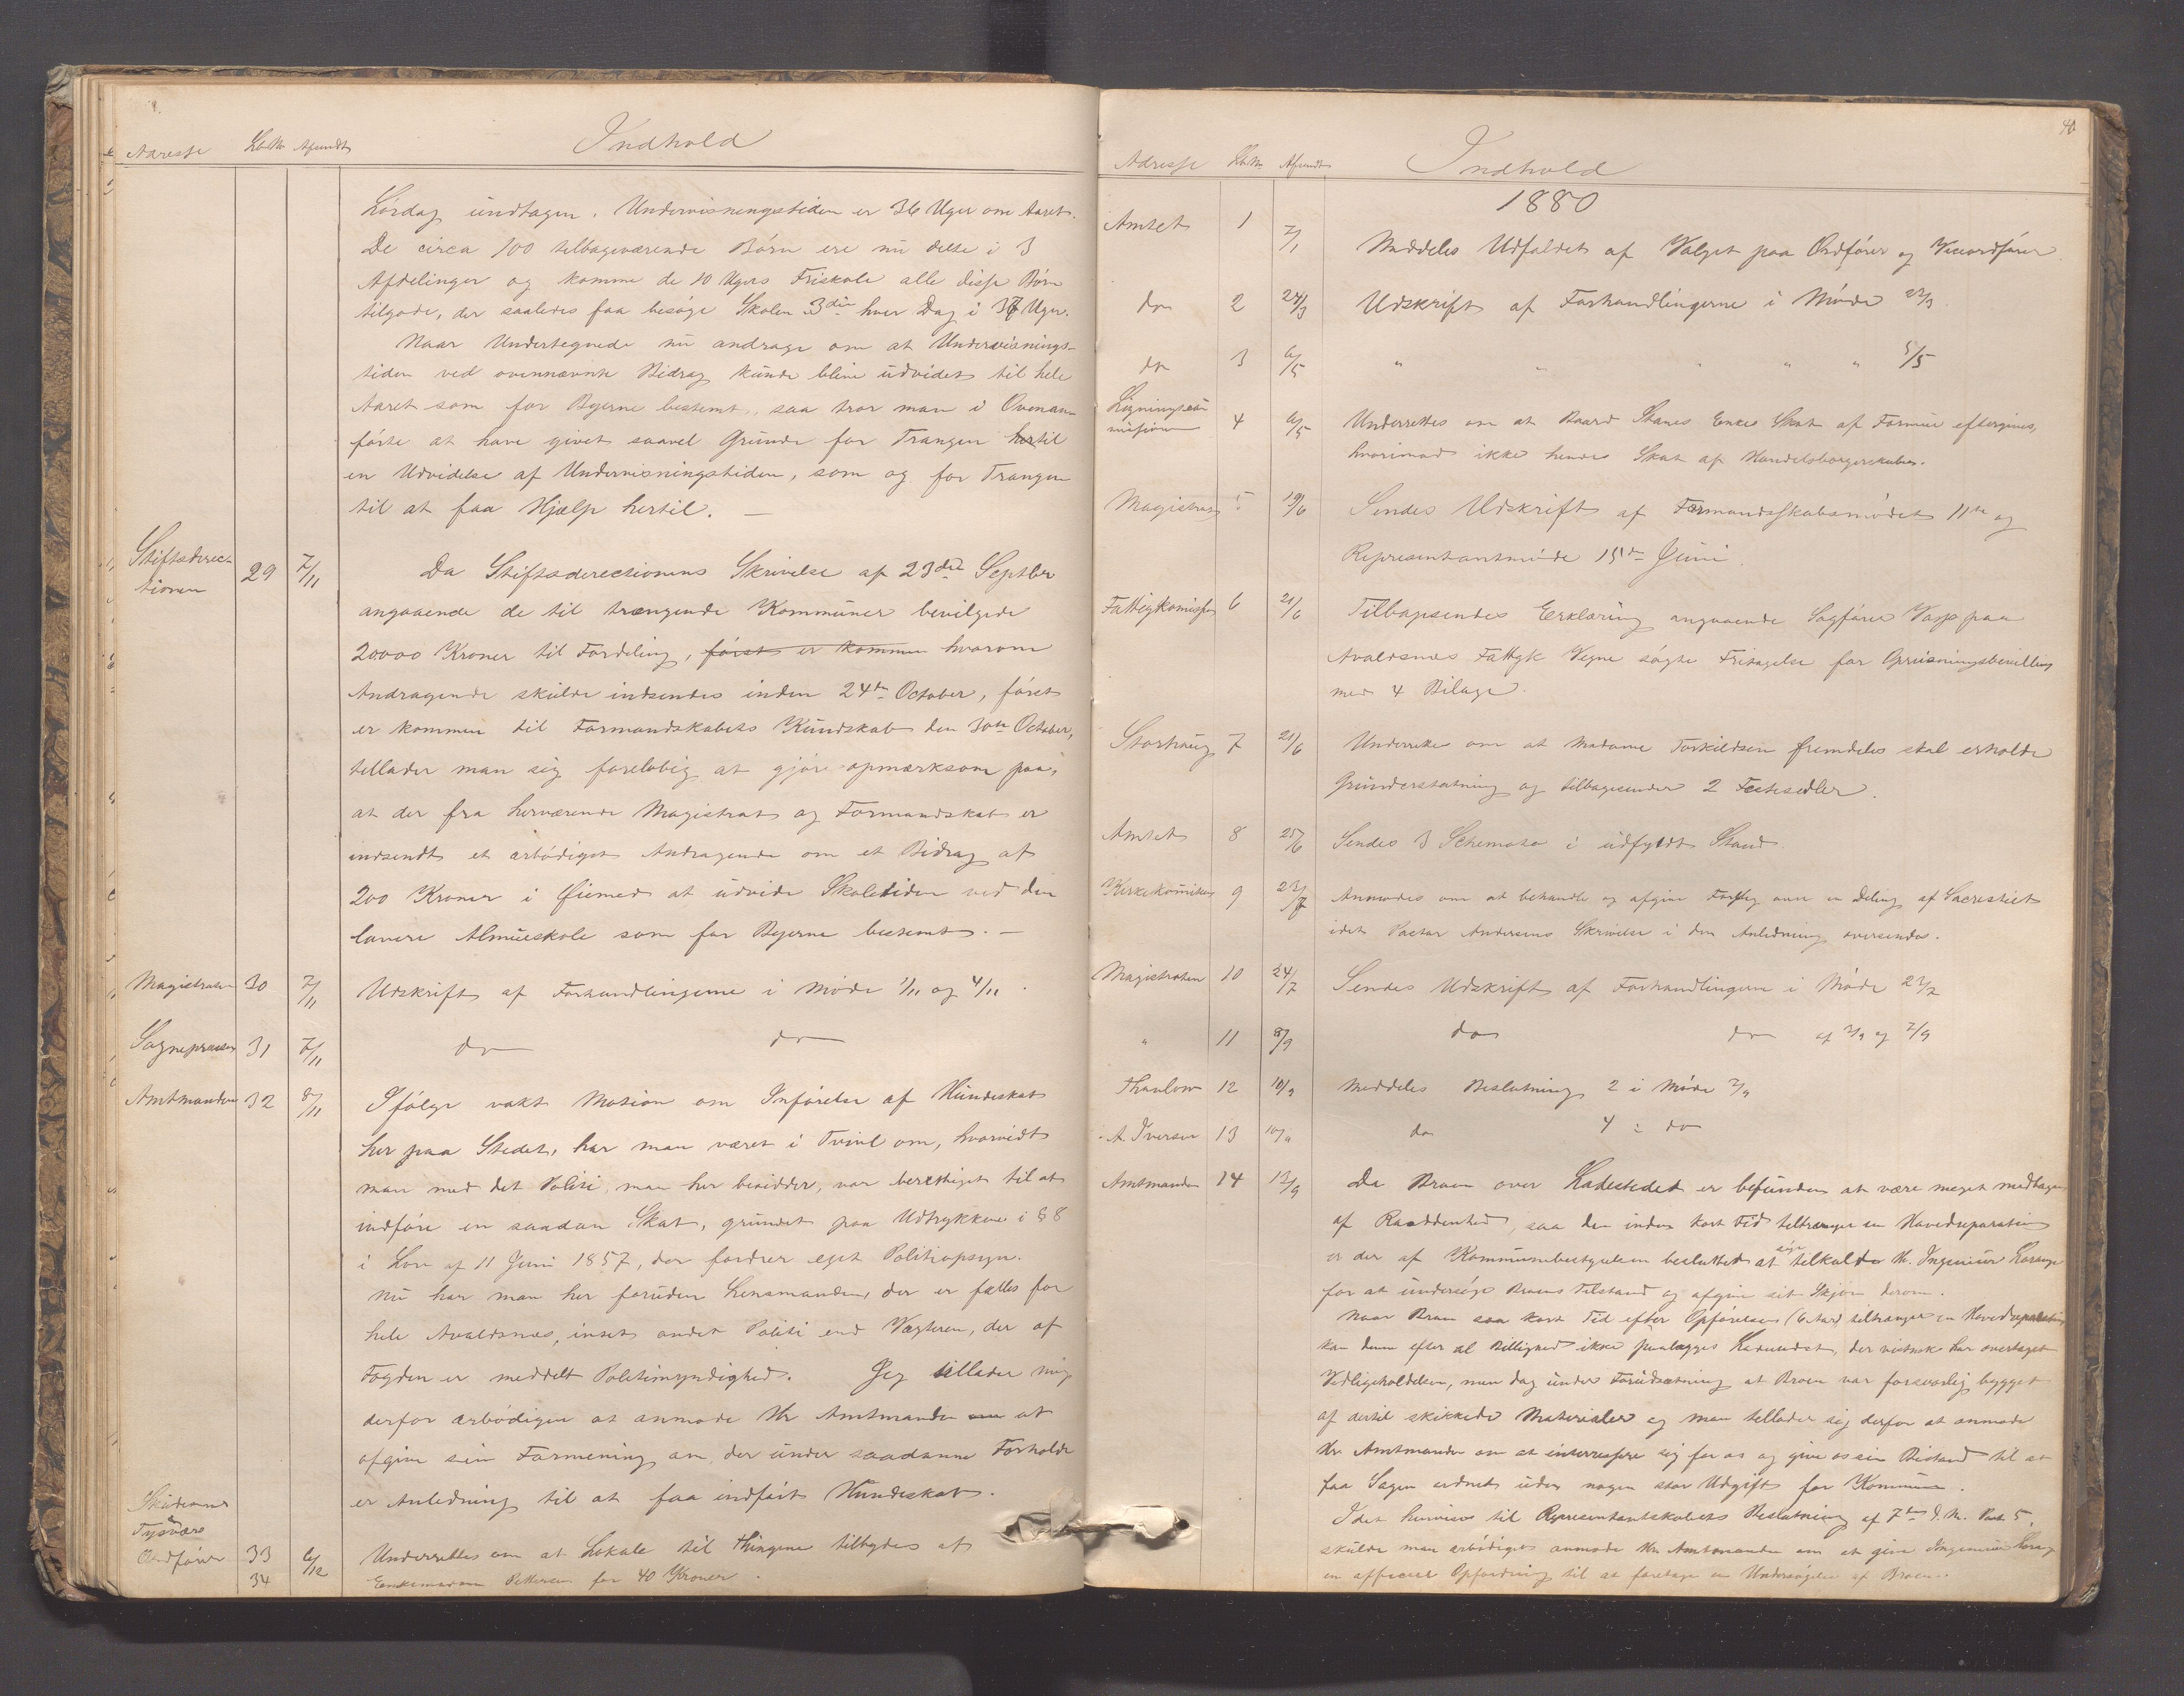 Adresse LbNo Afsendt Indhold
Lørdag undtagen. Undervisningstiden er 36 Uger om Aaret.
De circa 100 tilbageværende Børn ere nu delte i 3
Afdelinger og komme de 10 Ugers Friskole alle disse Børn
tilgode, der saaledes faa besøge Skolen 3die hver Dag i 37 Uger.
Naar Undertegnede nu andrage om at Undervisnings-
tiden ved ovennævnte Bidrag kunde blive udvidet til hele
Aaret som for Byerne bestemt, saa tror man i Ovenan-
førte at have givet saavel Grunde for Trangen hertil
en Udvidelse af Undervisningstiden, som og for Trangen
til at faa Hjælp hertil. —
Stiftsdirec-
tionen 29 7/11 Da Stiftsdirectionens Skrivelse af 23de Septbr
angaaende de til trængende Kommuner bevilgede
20000 Kroner til Fordeling, først er kommen hvorom
Andragende skulde indsendes inden 24de October, først
er kommen til Formandskabets Kundskab den 30te October,
tillader man sig foreløbig at gjøre opmærksom paa,
at der fra herværende Magistrat og Formandskab er
indsendt et ærbødigst Andragende om et Bidrag af
200 Kroner i Øiemed at udvide Skoletiden ved den
lavere Almueskole som for Byerne bestemt. —
Magistraten 30 7/11 Udskrift af Forhandlingerne i Møde 1/11 og 4/11.
Sognepræsten 31 7/11 do do
Amtmanden 32 8/11 Ifølge vakt Motion om Inførelse af Hundeskat
her paa Stedet, har man været i Tvivl om, hvorvidt
man med det Politi, man her besidder, var berettiget til at
indføre en saadan Skat, grundet paa Udtrykkene i § 8
i Lov af 11 Juni 1857, der fordrer eget Politiopsyn.
Nu har man her foruden Lensmanden, der er fælles for
hele Avaldsnes, intet andet Politi end Vægteren, der af
Fogden er meddelt Politimyndighed. Jeg tillader mig
derfor ærbødigst at anmode Hr Amtmanden om at
afgive sin Formening om der under saadanne Forholde
er Anledning til at faa indført Hundeskat.
Skudesnes
Tysvær
Ordfører 33 6/12 Underrettes om at Lokale til Thingene tilbydes af
34 Enkemadam Pettersen for 40 Kroner.
40
Adresse LbNo Afsendt Indhold
1880
Amtet 1 7/1 Meddeles Udfaldet af Valget paa Ordfører og Viceordfører
do 2 24/3 Udskrift af Forhandlingerne i Møde 22/3
do 3 6/5 " " " " " 5/5
Ligningskom-
mission 4 6/5 Underrettes om at Baard Stanes Enkes Skat af Formue eftergives,
hvorimod ikke hendes Skat af Handelsborgerskabet.
Magistrat 5 19/6 Sendes Udskrift af Formandsskabsmødet 11te og
Representantmøde 15de Juni
Fattigkomission 6 21/6 Tilbagesendes Erklæring angaaende Sagfører paa
Avaldsnes Fattigk Vegne søgte Fritagelse for
med 4 Bilage.
Storhaug 7 21/6 Underrettes om at Madame Torkildsen fremdeles skal erholde
Grunderstatning og tilbagesender 2 Festesedler.
Amtet 8 25/6 Sendes 3 Schemata i udfyldt Stand.
Kirkekomiteen 9 23/7 Anmodes om at behandle og afgive Forslag om en Deling af Sacrestiet
idet Pastor Andersens Skrivelse i den Anledning oversendes.
Magistraten 10 24/7 Sendes Udskrift af Forhandlingerne i Møde 22/7
" 11 8/9 do do af 2/9 og 7/9
Thaulow 12 10/9 Meddeles Beslutning 2 i Møde 7/9
A. Iversen 13 10/9 do 4 i do
Amtmanden 14 12/9 Da Broen over Ladestedet er befunden at være meget medtagen
af Raaddenhed, saa den inden kort Tid tiltrænger en Hovedreparation
er der af Kommunebestyrelsen besluttet at tilkalde Hr. Ingeniør
for at undersøge Broens Tilstand og afgive sit Skjøn derom.
Naar Broen saa kort Tid efter Opførelsen (6 Aar) tiltrænger en Hovedreparation
kan denne efter al Billighed ikke paalægges Ladestedet, der vistnok har overtaget
Vedligeholdelsen, men dog under Forudsætning at Broen var forsvarlig bygget
af dertil skikkede Materialer og man tillader sig derfor at anmode
Hr. Amtmanden om at interressere sig for os og give os sin Bistand til at
faa Sagen ordnet uden nogen stor Udgift for Kommunen.
Idet henvises til Representantskabets Beslutning af 7de d. M. Post 5,
skulde man ærbødigst anmode Hr Amtmanden om at give Ingeniør
en officiel Opfordring til at foretage en Undersøgelse af Broen.